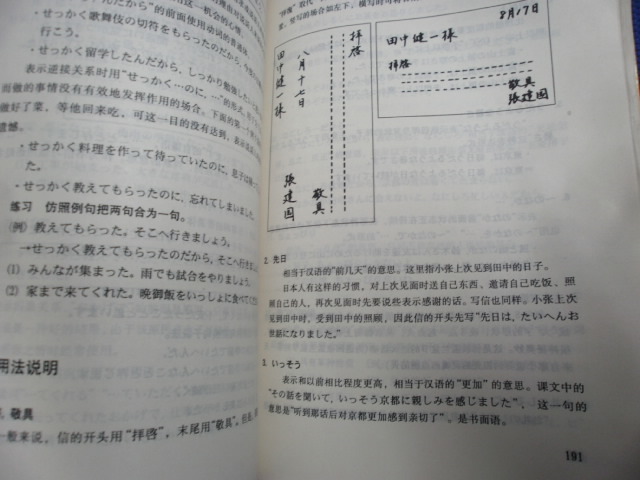 用这一机会的心情。
んだから”的前面使用动词的普通体。
・せっかく歌舞伎の切符をもらったのだから、
行こう。
・せっかく留学したんだから、しっかり勉強し
表示逆接关系时用“せっかく…のに，…”的形式，
而做的事情没有有效地发挥作用的场合。下面的第一个
做好了菜，等他回来吃，可这一目的没有达到，表示
遗憾。
・せっかく料理を作って待っていたのに，息子は帰っ
た。
・せっかく教えてもらったのに，忘れてしまいました。
练习　仿照例句把两句合为一句。
(例) 教えてもらった。そこへ行きましょう。
→せっかく教えてもらったのだから，そこへ行きましょう
(1) みんなが集まった。雨でも試合をやりましょう。
(2) 家まで来てくれた。晩御飯をいっしょに食べてく
用法说明
敬具
一般来说，信的开头用“拝啓”，末尾用“敬具”。
拝啓
八月十七日
田中健一様
敬具
張建国
8月17日
田中健一様
拝啓
敬具
張建国
2. 先日
相当于汉语的“前几天”的意思。这里指小张上次见到田中的日子。
日本人有这样的习惯，对上次见面时送自己东西、邀请自己吃饭、照
顾自己的人，再次见面时先要说些表示感谢的话。写信也同样。小张上次
见到田中时，受到田中的照顾，因此信的开头先写“先日は，たいへんお
世話になりました。”
3. いっそう
表示和以前相比程度更高，相当于汉语的“更加”的意思。课文中的
“その話を聞いて，いっそう京都に親しみを感じました”，这一句的
意思是“听到那话后对京都更加感到亲切了”。是书面语。
191